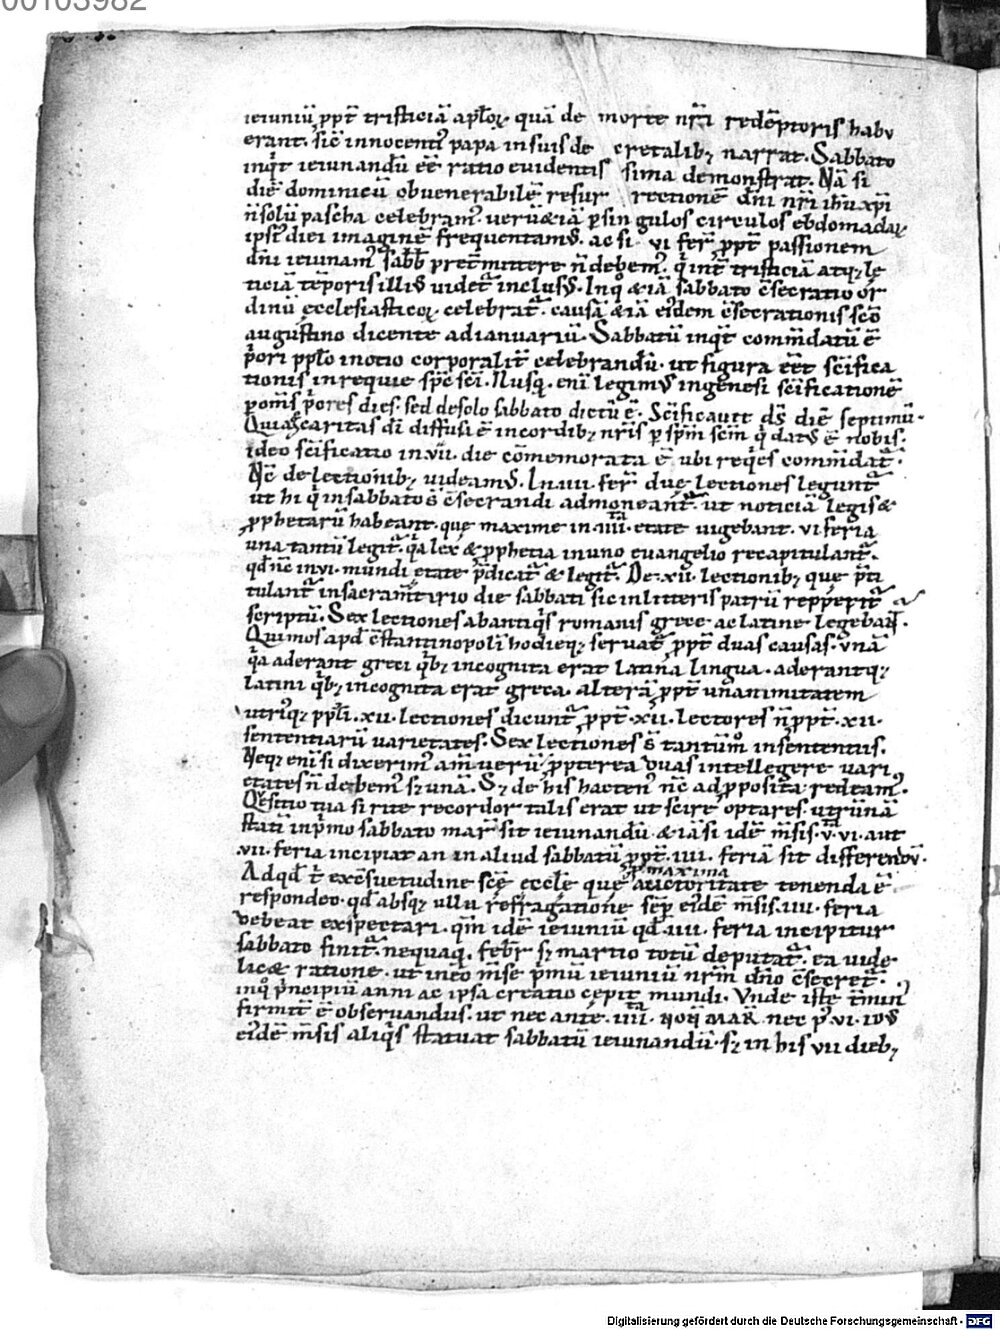 00103982
ieiuniū ppt̄ tristiciā apl̄oꝝ quā de morte nr̄i redēptoris habu
erant. sic̄ innocentꝰ papa in suis de cretalibꝫ narrat. Sabbato
inqͥt ieiunandū eē ratio euidentis sima demonstrat. Nā si
diē dominicū ob uenerabilē resur rectionē dn̄i nr̄i ih̄u xp̄i
n̄ solū pascha celebramꝰ. uerū & iā ꝑ singulos circulos ebdomadaꝝ
ipsiꝰ diei imaginē frequentamꝰ. ac si vi fer̄ ppt̄ passionem
dn̄i ieiunamꝰ sabb̄ pret̄mittere n̄ debemꝰ. qͥ int̄ tristiciā atqꝫ le
ticiā tēporis illiꝰ uidet̄ inclusꝰ. Inqͦ & iā sabbato c̄secratio or
dinū ecclesiasticoꝝ celebrat̄. causā & iā eidem c̄secrationis sc̄o
augustino dicente ad ianuariū. Sabbatū inqͥt com̄datū ē
pͥori ppl̄o in otio corporalit̄ celebrandū. ut figura eēt sc̄ifica
tionis in requie sp̄c sc̄i. Nusqͣ. enī legimꝰ in genesi sc̄ificationē
ꝑ om̄s pͥores dies. sed de solo sabbato dictū ē. Sc̄ificauit d̄s diē septimū.
Quia caritas dī diffusa ē in cordibꝫ nr̄is ꝑ sp̄m sc̄m qͥ datꝰ ē nobis.
ideo sc̄ificatio in .vii. die cōmemorata ē ubi reqͥes com̄dat̄.
Nc̄ de lectionibꝫ uideamꝰ. In iiii. fer̄ due lectiones legunt̄
ut hi qͥ in sabbato s̄ c̄secrandi admoneant̄. ut noticiā legis &
ꝓphetarū habeant. que maxime in .iiii. etate uigebant. vi feria
una tantū legit̄. qͣ lex & ꝓphetia in uno euangelio recapitulant̄.
qd̄ nc̄ in vi. mundi etate p̄dicat̄ & legit̄. De .xii. lectionibꝫ que
tulant̄ in sacram̄tario die sabbati sic in litteris patrū repperit̄
scriptū. Sex lectiones ab antiqͥs romanis grece ac latine legebant̄.
Qui mos apd̄ c̄stantinopolī hodieqꝫ seruat̄ ppt̄ duas causas. unā
qͣ aderant greci qͥbꝫ incognita erat latina lingua. aderantqꝫ
latini qͥbꝫ incognita erat greca. alterā ppt̄ unanimitatem
utriꝰqꝫ ppl̄i. xii. lectiones dicunt̄ ppt̄ .xii. lectores n̄ ppt̄ .xii.
sententiarū uarietates. Sex lectiones s̄ tantūm̊ in sententiis.
Neqꝫ enī si dixerimꝰ am̄ uerū ꝓpterea duas intellegere uari
etates n̄ debemꝰ sꝫ unā. Sꝫ de his hactenꝰ nc̄ ad ꝓposita redeamꝰ.
Qͥestio tua si rite recordor talis erat ut scire optares. utrū unā
statī in pͥmo sabbato mar̄ sit ieiunandū & iā si idē m̄sis .v. vi. aut
.vii. feria incipiat an in aliud sabbatū ppt̄ .iiii. feriā sit differendū.
maxima
Ad qd̄ t̄ ex c̄suetudine sc̄ę eccl̄e que auctoritate tenenda ē
respondeo. qd̄ absqꝫ ulla refragatione sep̄ eidē m̄sis .iiii. feria
debeat exspectari. qm̄ idē ieiuniū qd̄ .iiii. feria incipitur
sabbato finit̄. nequaqͣ. febr̄ sꝫ martio totū deputat̄. ea uide
licet ratione. ut in eo m̄se pͥmū ieiuniū nr̄m dn̄o c̄secret̄.
inqͦ pͥncipiū anni ac ipsa creatio cepit mundi. Unde iste t̄minꝰ
firmit̄ ē obseruandus. ut nec ante .iiii. NON̄ MAR̄. nec pꝰ .vi. idꝰ
eidē m̄sis aliqͥs statuat sabbatū ieiunandū. sꝫ in his vii diebꝫ
Digitalisierung gefördert durch die Deutsche Forschungsgemeinschaft - DFG